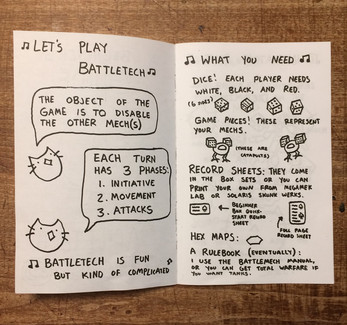 ♫ LET'S PLAY
BATTLETECH ♫
THE OBJECT OF THE
GAME IS TO DISABLE
THE OTHER MECH(S)
EACH TURN
HAS 3 PHASES:
1. INITIATIVE
2. MOVEMENT
3. ATTACKS
♫ BATTLETECH IS FUN
BUT KIND OF COMPLICATED ♫
♫ WHAT YOU NEED ♫
DICE! EACH PLAYER NEEDS
WHITE, BLACK, AND RED.
(6 SIDES)
GAME PIECES! THESE REPRESENT
YOUR MECHS.
(THESE ARE
CATAPULTS)
RECORD SHEETS: THEY COME
IN THE BOX SETS OR YOU CAN
PRINT YOUR OWN FROM MEGAMEK
LAB OR SOLARIS SKUNK WERKS.
← BEGINNER
BOX QUICK-
START RECORD
SHEET
FULL PAGE
RECORD SHEET
HEX MAPS:
A RULEBOOK (EVENTUALLY):
I USE THE BATTLEMECH MANUAL,
OR YOU CAN GET TOTAL WARFARE IF
YOU WANT TANKS.